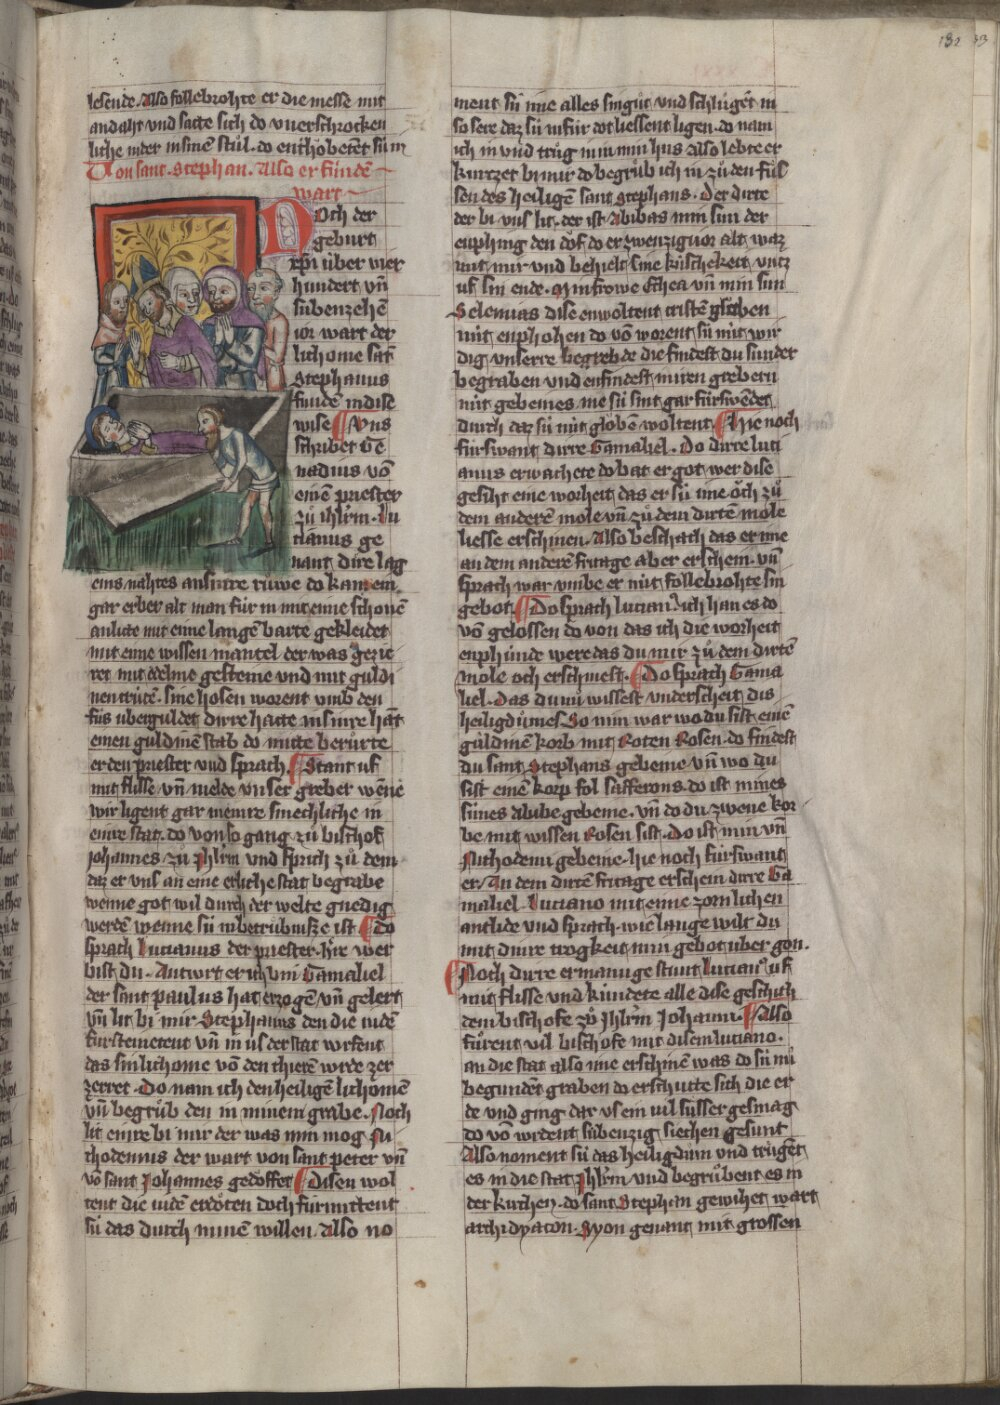 132 33
lesende. Also follebrohte er die messe mit
andaht vnd satte sich do vnerschrocken
liche nider in sinen stůl. do enthobetent sú in
Von sant Stephan. Also er fundē
wart
Noch der
geburt
xp̄i úber vier
hundert vn̄
súbenzehē
ior wart der
lichome sāt
Stephanus
funden in dise
wise Vns
schribet Ge
nadius vō
eimē priester
zů ihlr̄m. Lu
cianus ge
nant dire lag
eins nahtes an sinre růwe do kam ein
gar erber alt man fúr in mit eime schonē
anlitte mit eime langē barte gekleidet
mit eime wissen mantel der was gezie
ret mit edelme gesteine vnd mit guldi
nen crútze. sine hosen worent vmb den
fůs úberguldet dirre hatte in sinre hāt
einen guldinē stab do mitte berůrte
er den priester vnd sprach. Stant uf
mit flisse vn̄ melde vnser greber wēne
wir ligent gar in eime smechliche in
einre stat. do von so gang zů bischof
Johannes zů Jhlr̄m vnd sprich zů dem
daz er vns an eine erliche stat begrabe
wenne got wil durch der welte gnedig
werdē wenne sú in betrúbnisze ist Do
sprach Lucianus der priester. h're wer
bist du. Antwrt er ich bin Gamaliel
der sant paulus hat erzogē vn̄ gelert
vn̄ lit bi mir Stephanus den die iudē
fúrsteinetent vn̄ in us der stat wrfent
das sin lichome vō den thierē wrde zer
zerret. Do nam ich den heiligē lichomē
vn̄ begrůb den in minem grabe. Noch
lit einre bi mir der was min mog Ni
chodemus der wart von sant peter vn̄
vō sant Johannes gedoffet Disen wol
tent die iudē erdōten doch fúrmittent
sú das durch minē willen. Also no
ment sú ime alles sin gůt vnd schlůgēt in
so sere daz sú in fúr dot liessent ligen. do nam
ich in vnd trůg in in min hus Also lebte er
kurtzet bi mir do begrůb ich in zů den fůs
sen des heiligē sant Stephans. Der dirte
der bi vns lit. der ist Abibas min sun der
enphing den dōf do er zwenzig ior alt waz
mit mir vnd behielt sine kúschekeit vntz
uf sin ende. Min frowe Ethea vn̄ min sun
Selemias dise enwoltent cristē glōben
nút enphohen do vō worent sú nút wir
dig vnserre begrebde die findest du sunder
begraben vnd enfindest in iren grebern
nút gebeines me sú sint gar fúrswēdet
durch daz sú nút glōben woltent Hie noch
fúrswant dirre Gamaliel. Do dirre luci
anus erwachete do bat er got wer dise
gesiht eine worheit das er sú ime ōch zů
dem anderē mole vn̄ zů dem dirtē mole
liesse erschinen. Also beschach das er ime
an dem anderē fritage aber erschein. vn̄
sprach war vmbe er nút follebrohte sin
gebot Do sprach lucian' ich han es do
vō gelossen do von das ich die worheit
enphúnde were das du mir zů dem dirtē
mole och erschinest. Do sprach Gama
liel. Das du nu wissest vnderscheit dis
heiligdůmes So nim war wo du sist einē
gůldinē korb mit Roten Rosen. do findest
du sant Stephans gebeine vn̄ wo du
sist einē korp fol safferons. do ist mines
sunes Abibe gebeine. vn̄ do du zwene kor
be mit wissen Rosen sist. Do ist min vn̄
Nichodemi gebeine. hie noch fúrswant
er. An dem dirtē fritage erschein dirre Ga
maliel Luciano mit eime zornlichen
antlide vnd sprach. wie lange wilt du
mit dinre trogkeit min gebot úber gon.
Noch dirre ermanuge stunt Lucian' uf
mit flisse vnd kúndete alle dise geschich
dem bischofe zů Jhlr̄m Johann. Also
fůrent vil bischofe mit disem luciano.
an die stat also ime erschinē was do sú nu
begundēt graben do erschutte sich die er
de vnd ging dar vs ein vil sússer gesmag
do vō wrdent súbenzig siechen gesunt
Also noment sú das heiligdům vnd trůgēt
es in die stat Jhlr̄m vnd begrůbent es in
der kirchen. do sant Stephan gewihet wart
archidyacon. Syon genant mit grossen